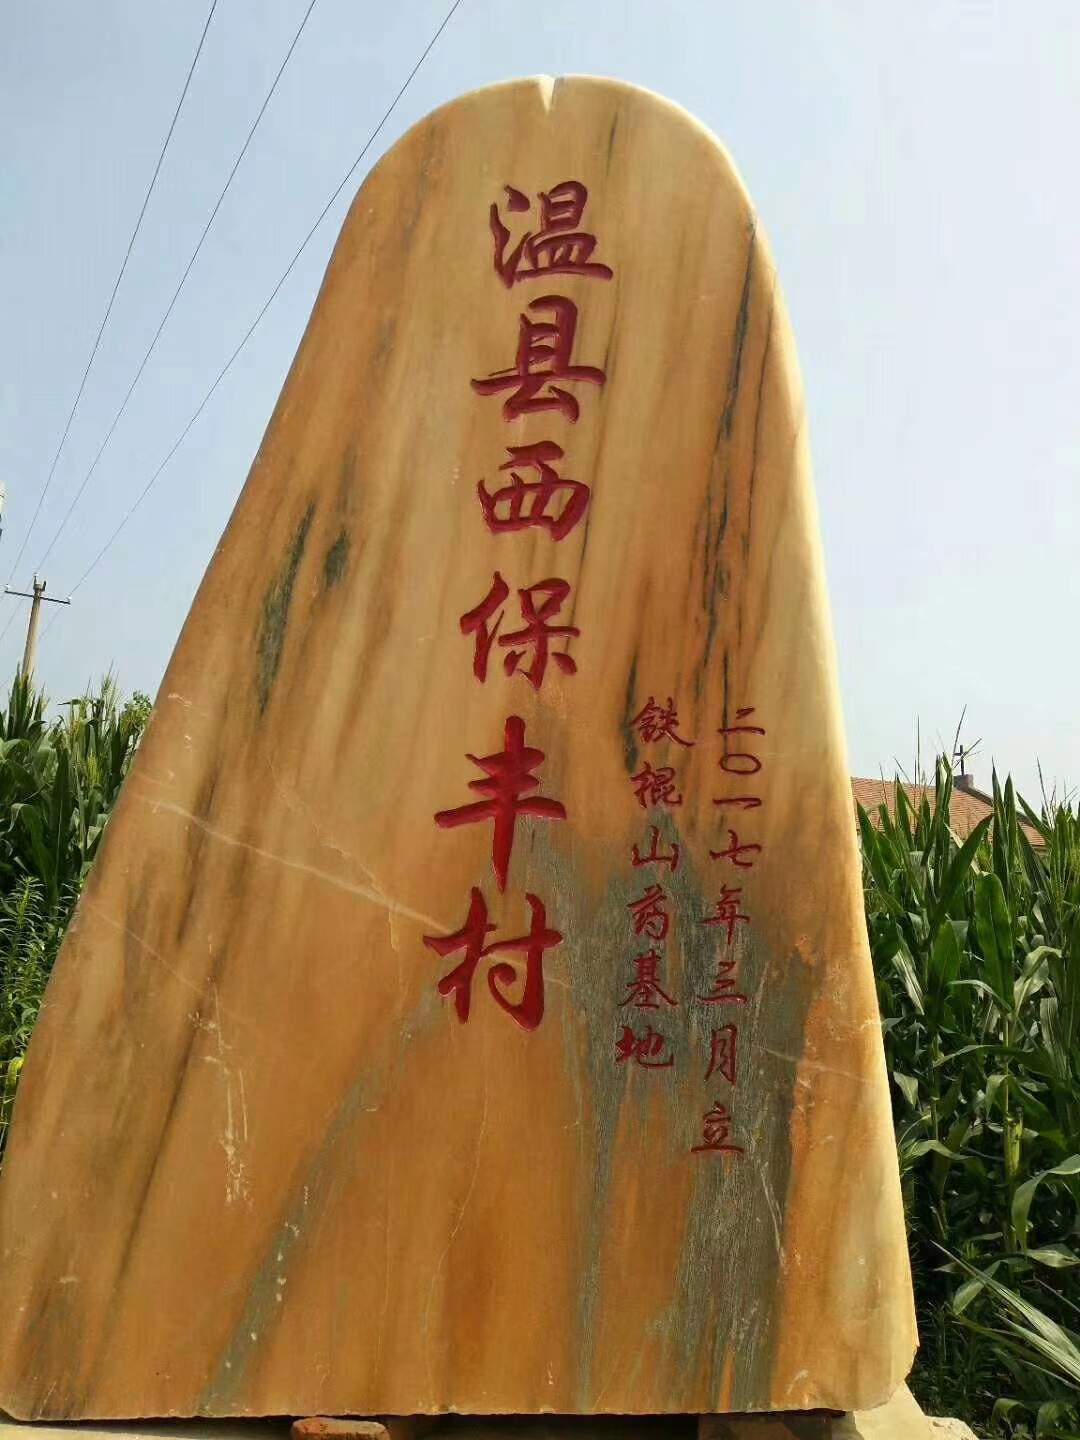 温县西保丰村
铁棍山药基地
二〇一七年三月立